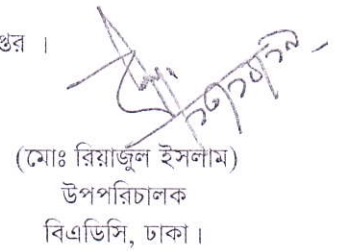 প্তর ।
(মোঃ রিয়াজুল ইসলাম)
উপপরিচালক
বিএডিসি, ঢাকা।